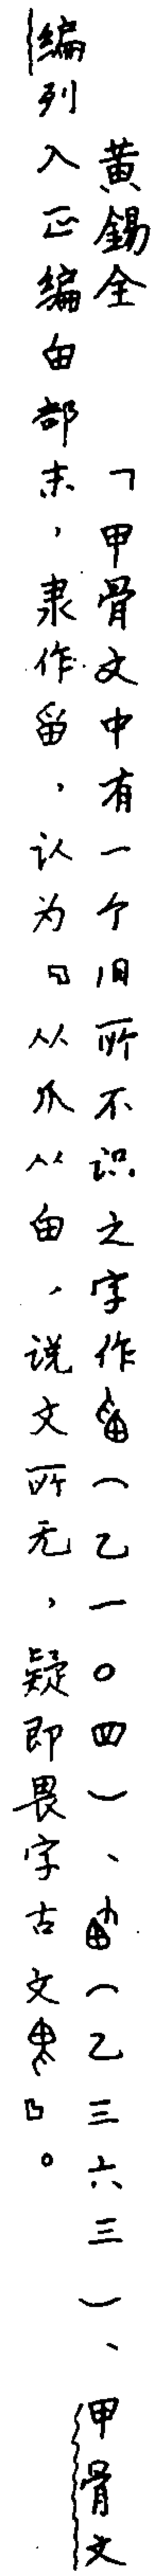 黄錫全　「甲骨文中有一个旧所不识之字作（乙一〇四）、（乙三六三）、甲骨文
編列入正編甶部末，隶作，认为『从爪从甶，说文所无，疑即畏字古文』。